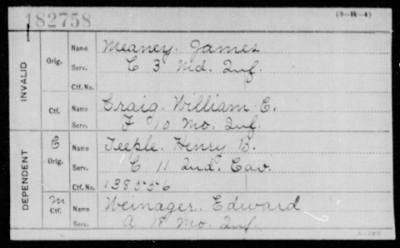 182758
(3-H-4)
INVALID
Orig.
Name Meaney. James
Serv. C 3 Md. Inf.
Ctf. No.
Ctf.
Name Craig. William E.
Serv. F 10 Mo. Inf.
DEPENDENT
C
Orig.
Name Teeple. Henry B.
Serv. C 11 Ind. Cav.
Ctf. No. 138556
M
Ctf.
Name Weinager. Edward
Serv. A 18 Mo. Inf.